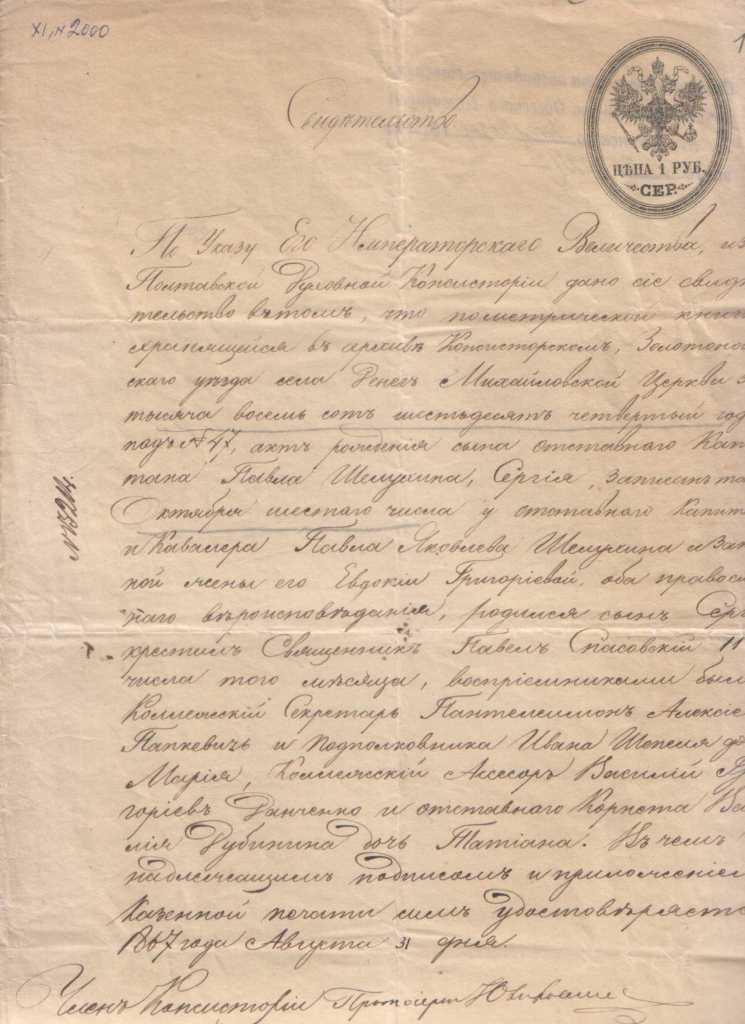 XI, N 2000
1
Свидѣтельство
ЦѢНА 1 РУБ.
СЕР.
По Указу Его Императорскаго Величества, из
Полтавской Духовной Консисторіи дано сіе свидѣ
тельство въ томъ, что по метрической книг
хранящейся въ архивѣ Консисторскомъ, Золотоно
скаго уѣзда села Денег Михайловской Церкви з
тысяча восемь сотъ шестьдесятъ четвертый год
подъ N 47, актъ рожденія сына отставнаго Кап
тана Павла Шелухина, Сергія, записанъ та
Октября шестаго числа у отставнаго Капит
и Кавалера Павла Яковлева Шелухина и Зак
ной жены его Евдокіи Григоріевой, оба правос
наго вѣроисповѣданія, родился сынъ Серг
крестилъ Священникъ Павелъ Спасовскій 11
числа того мѣсяца, воспріемниками был
Коллежскій Секретарь Пантелеимонъ Алексіе
Папкевичъ и Подполковника Ивана Шепеля до
Марія, Коллежскій Асесоръ Василій Гр
горіевъ Данченко и отставнаго Корнета Ва
лія Дубинина дочь Татіана. Въ чемъ
надлежащимъ подписомъ и приложеніем
Казенной печати симъ удостовѣряетс
1867 года Августа 31 дня.
Членъ Консисторіи Протоіерей